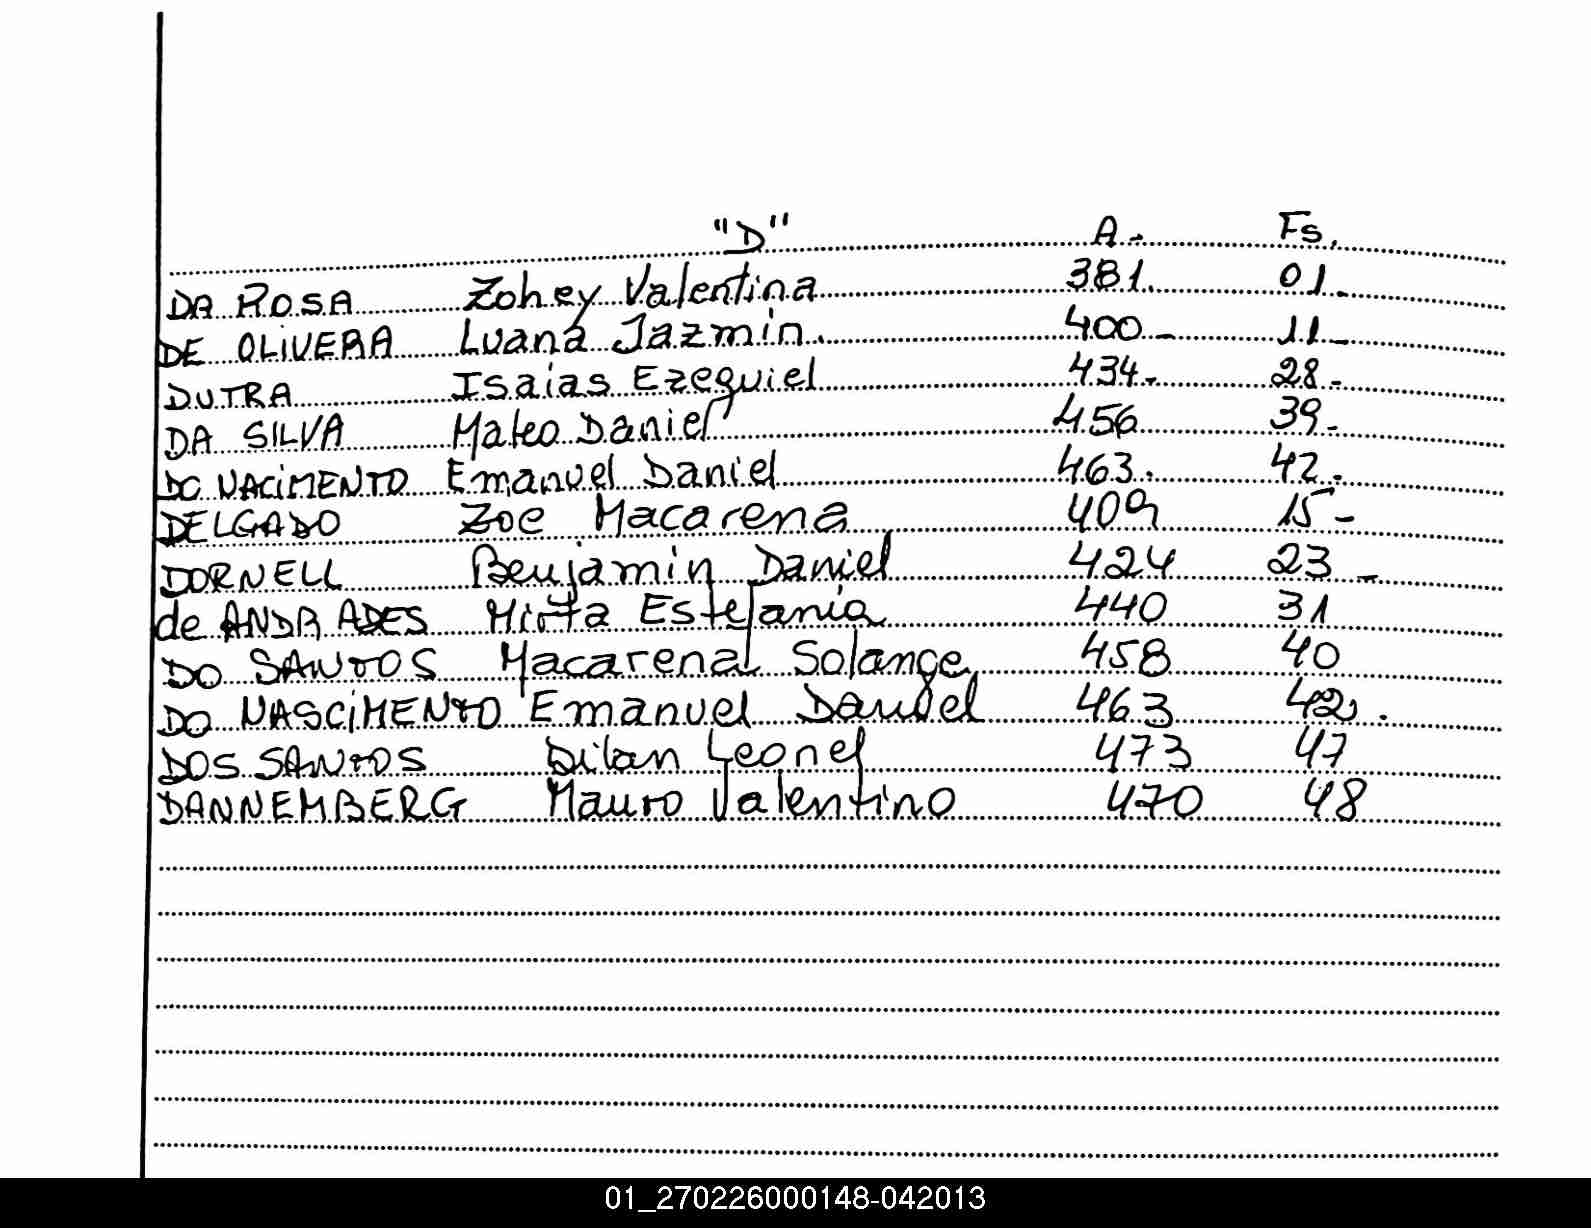 "D" A.- Fs.
DA ROSA Zohey Valentina 381. 01.-
DE OLIVERA Luana Jazmin. 400- 11-
DUTRA Isaias Ezequiel 434.- 28-
DA SILVA Mateo Daniel 456 39.-
DO NACIMENTO Emanuel Daniel 463. 42.
DELGADO Zoe Macarena 409 15-
DORNELL Benjamin Daniel 424 23-
de ANDRADES Mirta Estefania 440 31
DO SANTOS Macarena Solange 458 40
DO NASCIMENTO Emanuel Daniel 463 42.
DOS SANTOS Dilan Leonel 473 47
DANNEMBERG Mauro Valentino 470 48
01_270226000148-042013